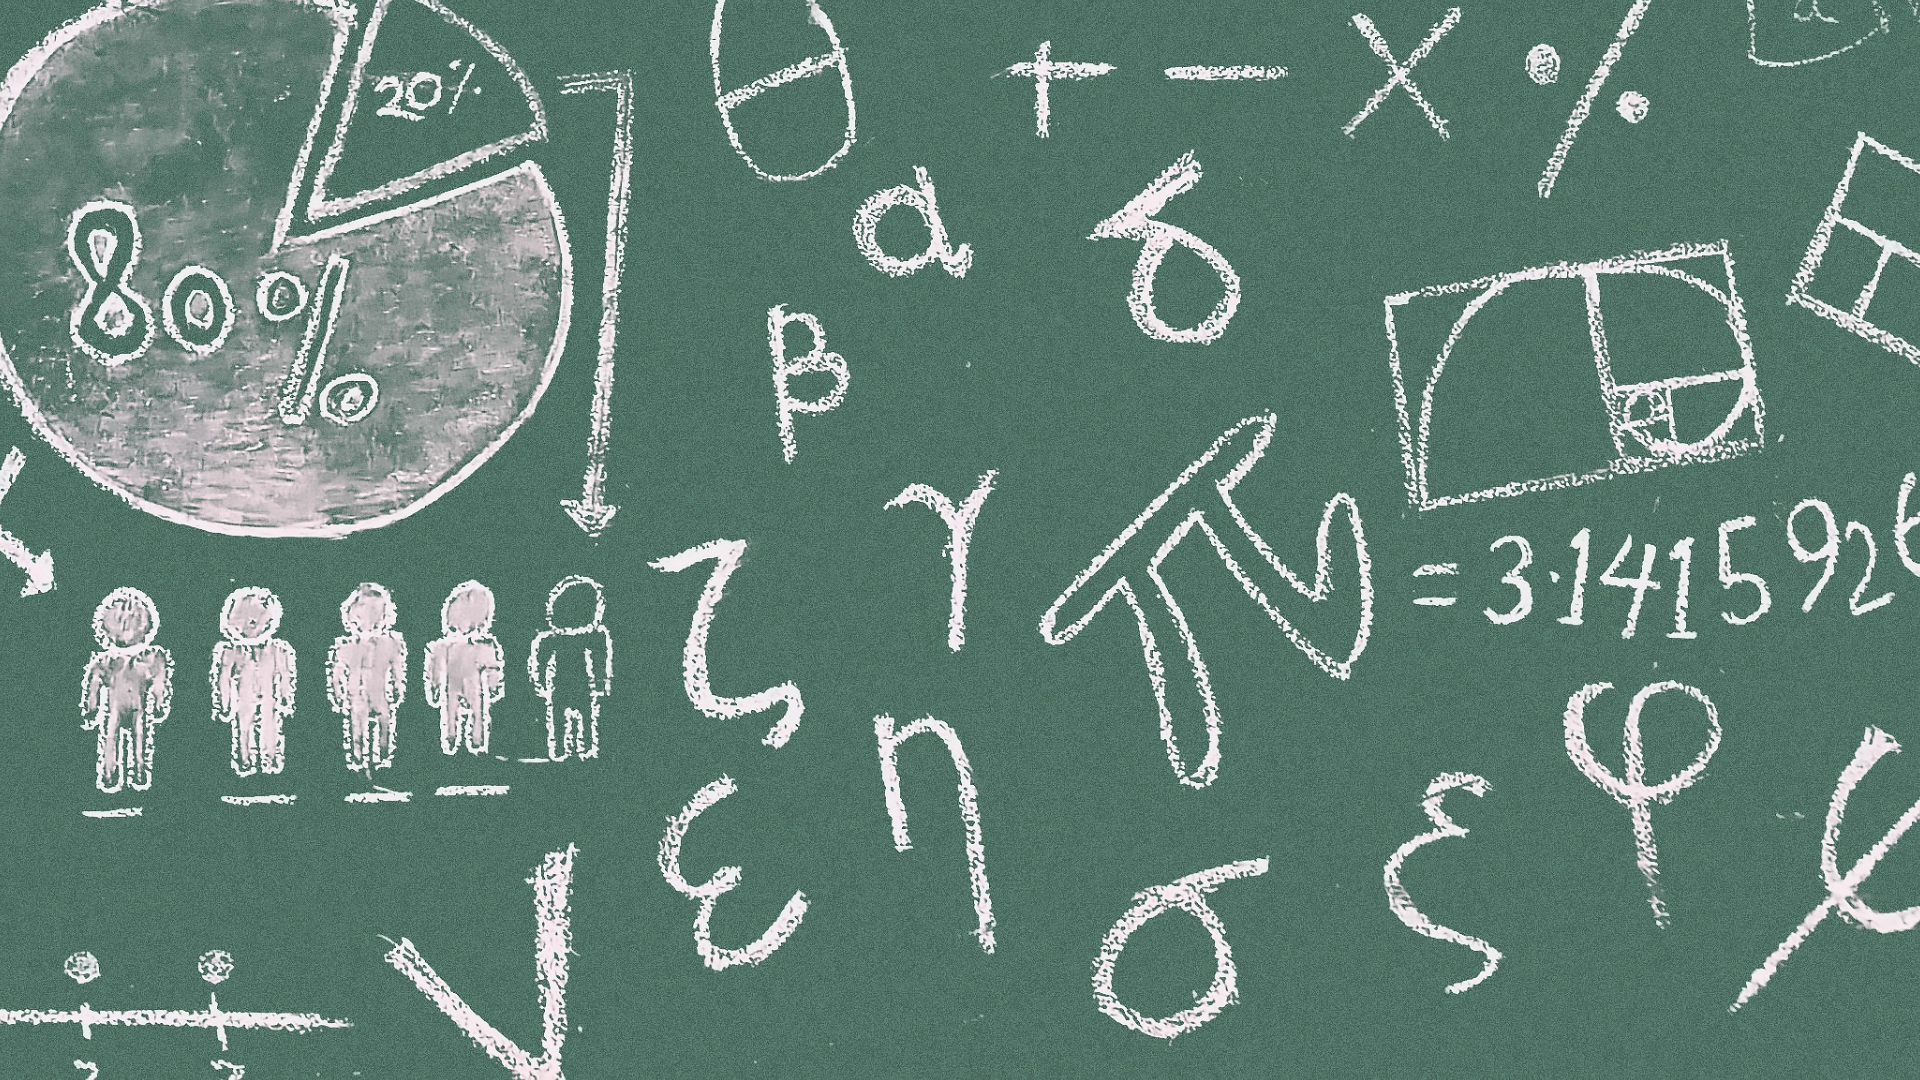 20%
80%
θ
+ − × %
α
δ
β
γ
π = 3.141592
ζ
η
ε
σ
ξ
φ
ψ